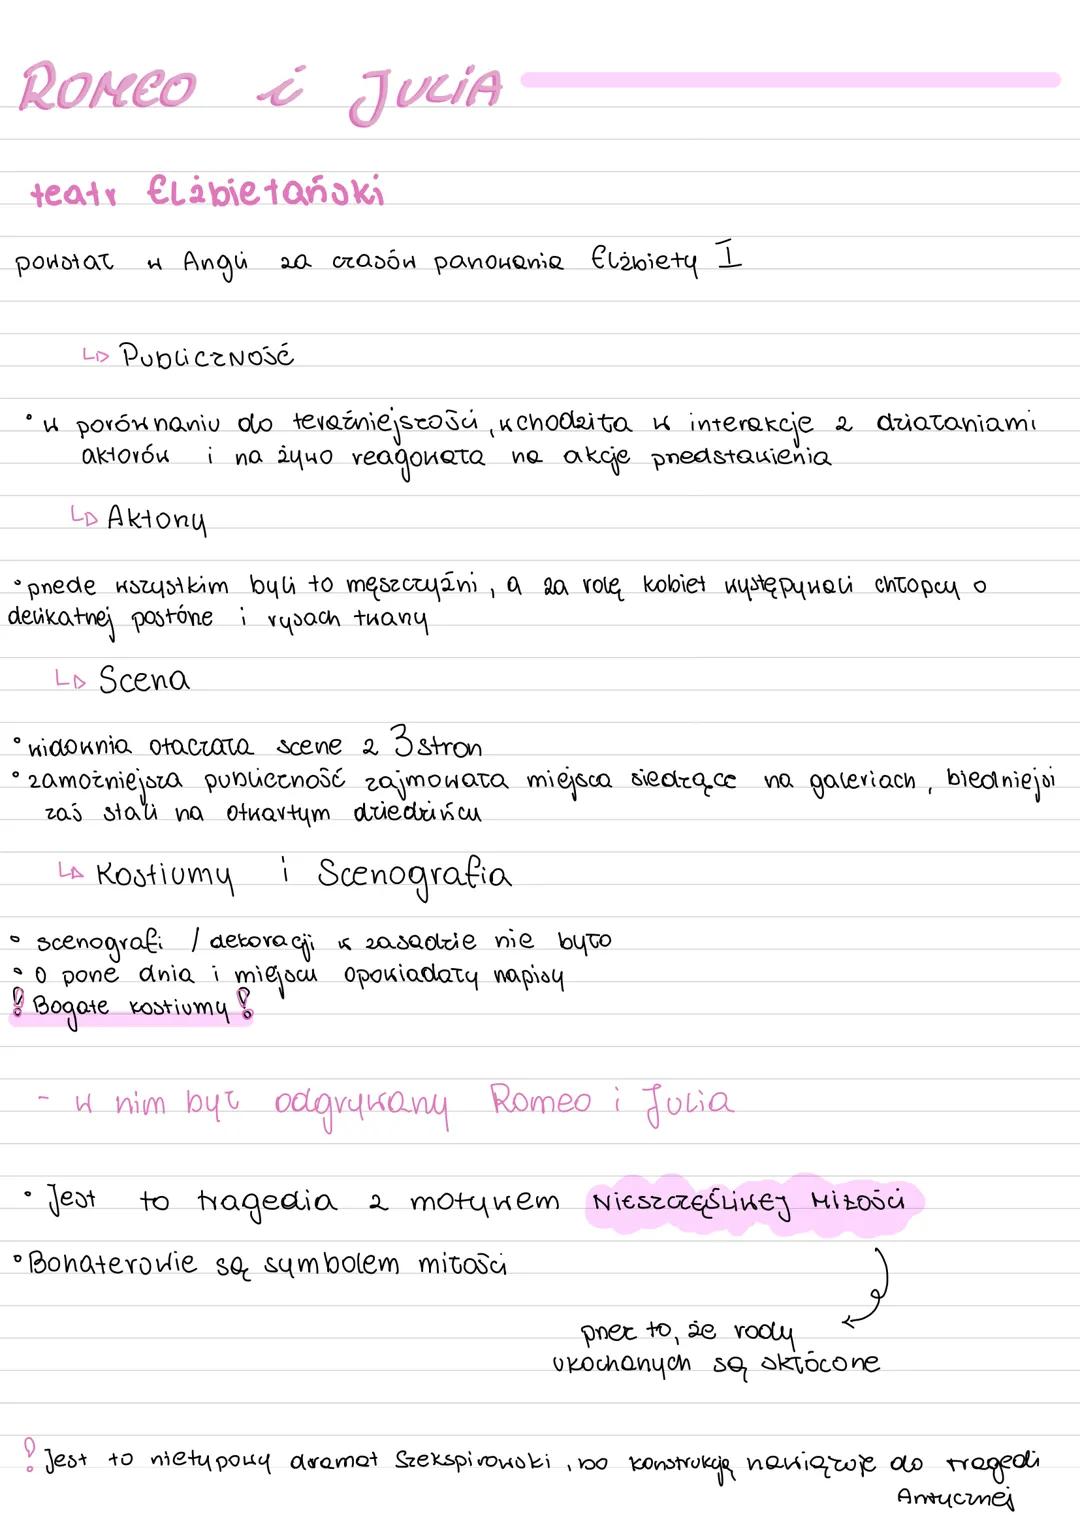 ROMEO i JULIA
teatr Elżbietański
powstał w Anglii za czasów panowania Elżbiety I
Publiczność
• w porównaniu do teraźniejszości, wchodziła w interakcje z działaniami
aktorów i na żywo reagowała na akcje przedstawienia
Aktorzy
• przede wszystkim byli to mężczyźni, a za rolę kobiet występywali chłopcy o
delikatnej postórze i rysach twarzy
Scena
• widownia otaczała scene z 3 stron
• zamożniejsza publiczność zajmowała miejsca siedzące na galeriach, biedniejsi
zaś stali na otwartym dziedzińcu
Kostiumy i Scenografia
• scenografi / dekoracji w zasadzie nie było
• O porze dnia i miejscu opowiadały napisy
! Bogate kostiumy !
- w nim był odgrywany Romeo i Julia
• Jest to tragedia z motywem NIESZCZĘŚLIWEJ MIŁOŚCI
• Bohaterowie są symbolem miłości
przez to, że rody
ukochanych są skłócone
! Jest to nietypowy dramat Szekspirowski, bo konstrukcją nawiązuje do tragedi
Antycznej